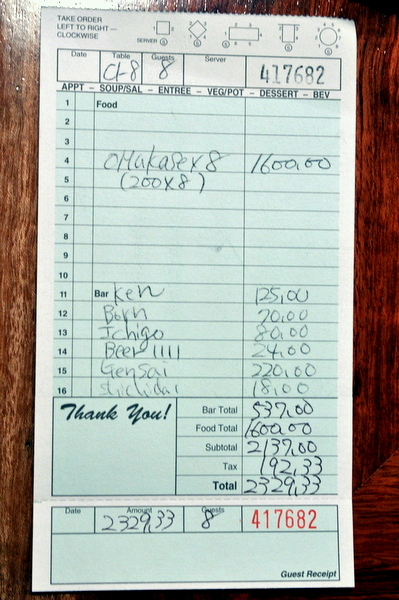 TAKE ORDER
LEFT TO RIGHT —
CLOCKWISE
SERVER S S S S S
Date Table Guests Server
C1-8 8 417682
APPT – SOUP/SAL – ENTREE – VEG/POT – DESSERT – BEV
1 Food
2
3
4 OMakase x 8 1600.00
5 (200x8)
6
7
8
9
10
11 Bar Ken 125.00
12 Born 70.00
13 Ichigo 80.00
14 Beer IIII 24.00
15 Gensai 220.00
16 18.00
Thank You!
Bar Total 537.00
Food Total 1600.00
Subtotal 2137.00
Tax 192.33
Total 2329.33
Date Amount Guests
2329.33 8 417682
Guest Receipt